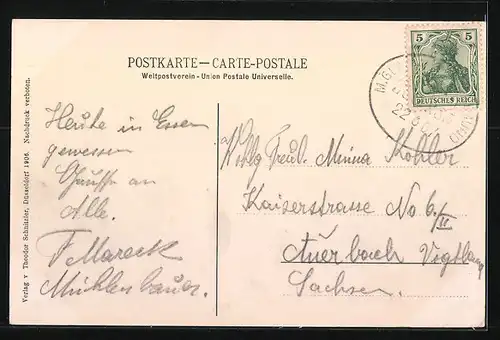 POSTKARTE — CARTE-POSTALE
Weltpostverein - Union Postale Universelle.
5 5
DEUTSCHES REICH
M.Gl
22 6 07
Verlag v Theodor Schnitzler, Düsseldorf 1906. Nachdruck verboten.
Heute in Essen
gewesen
an
Alle.
F Mareck
Mühlenbauer.
Minna Köhler
Kaiserstrasse No 6/II
Auerbach Vogtland
Sachsen.